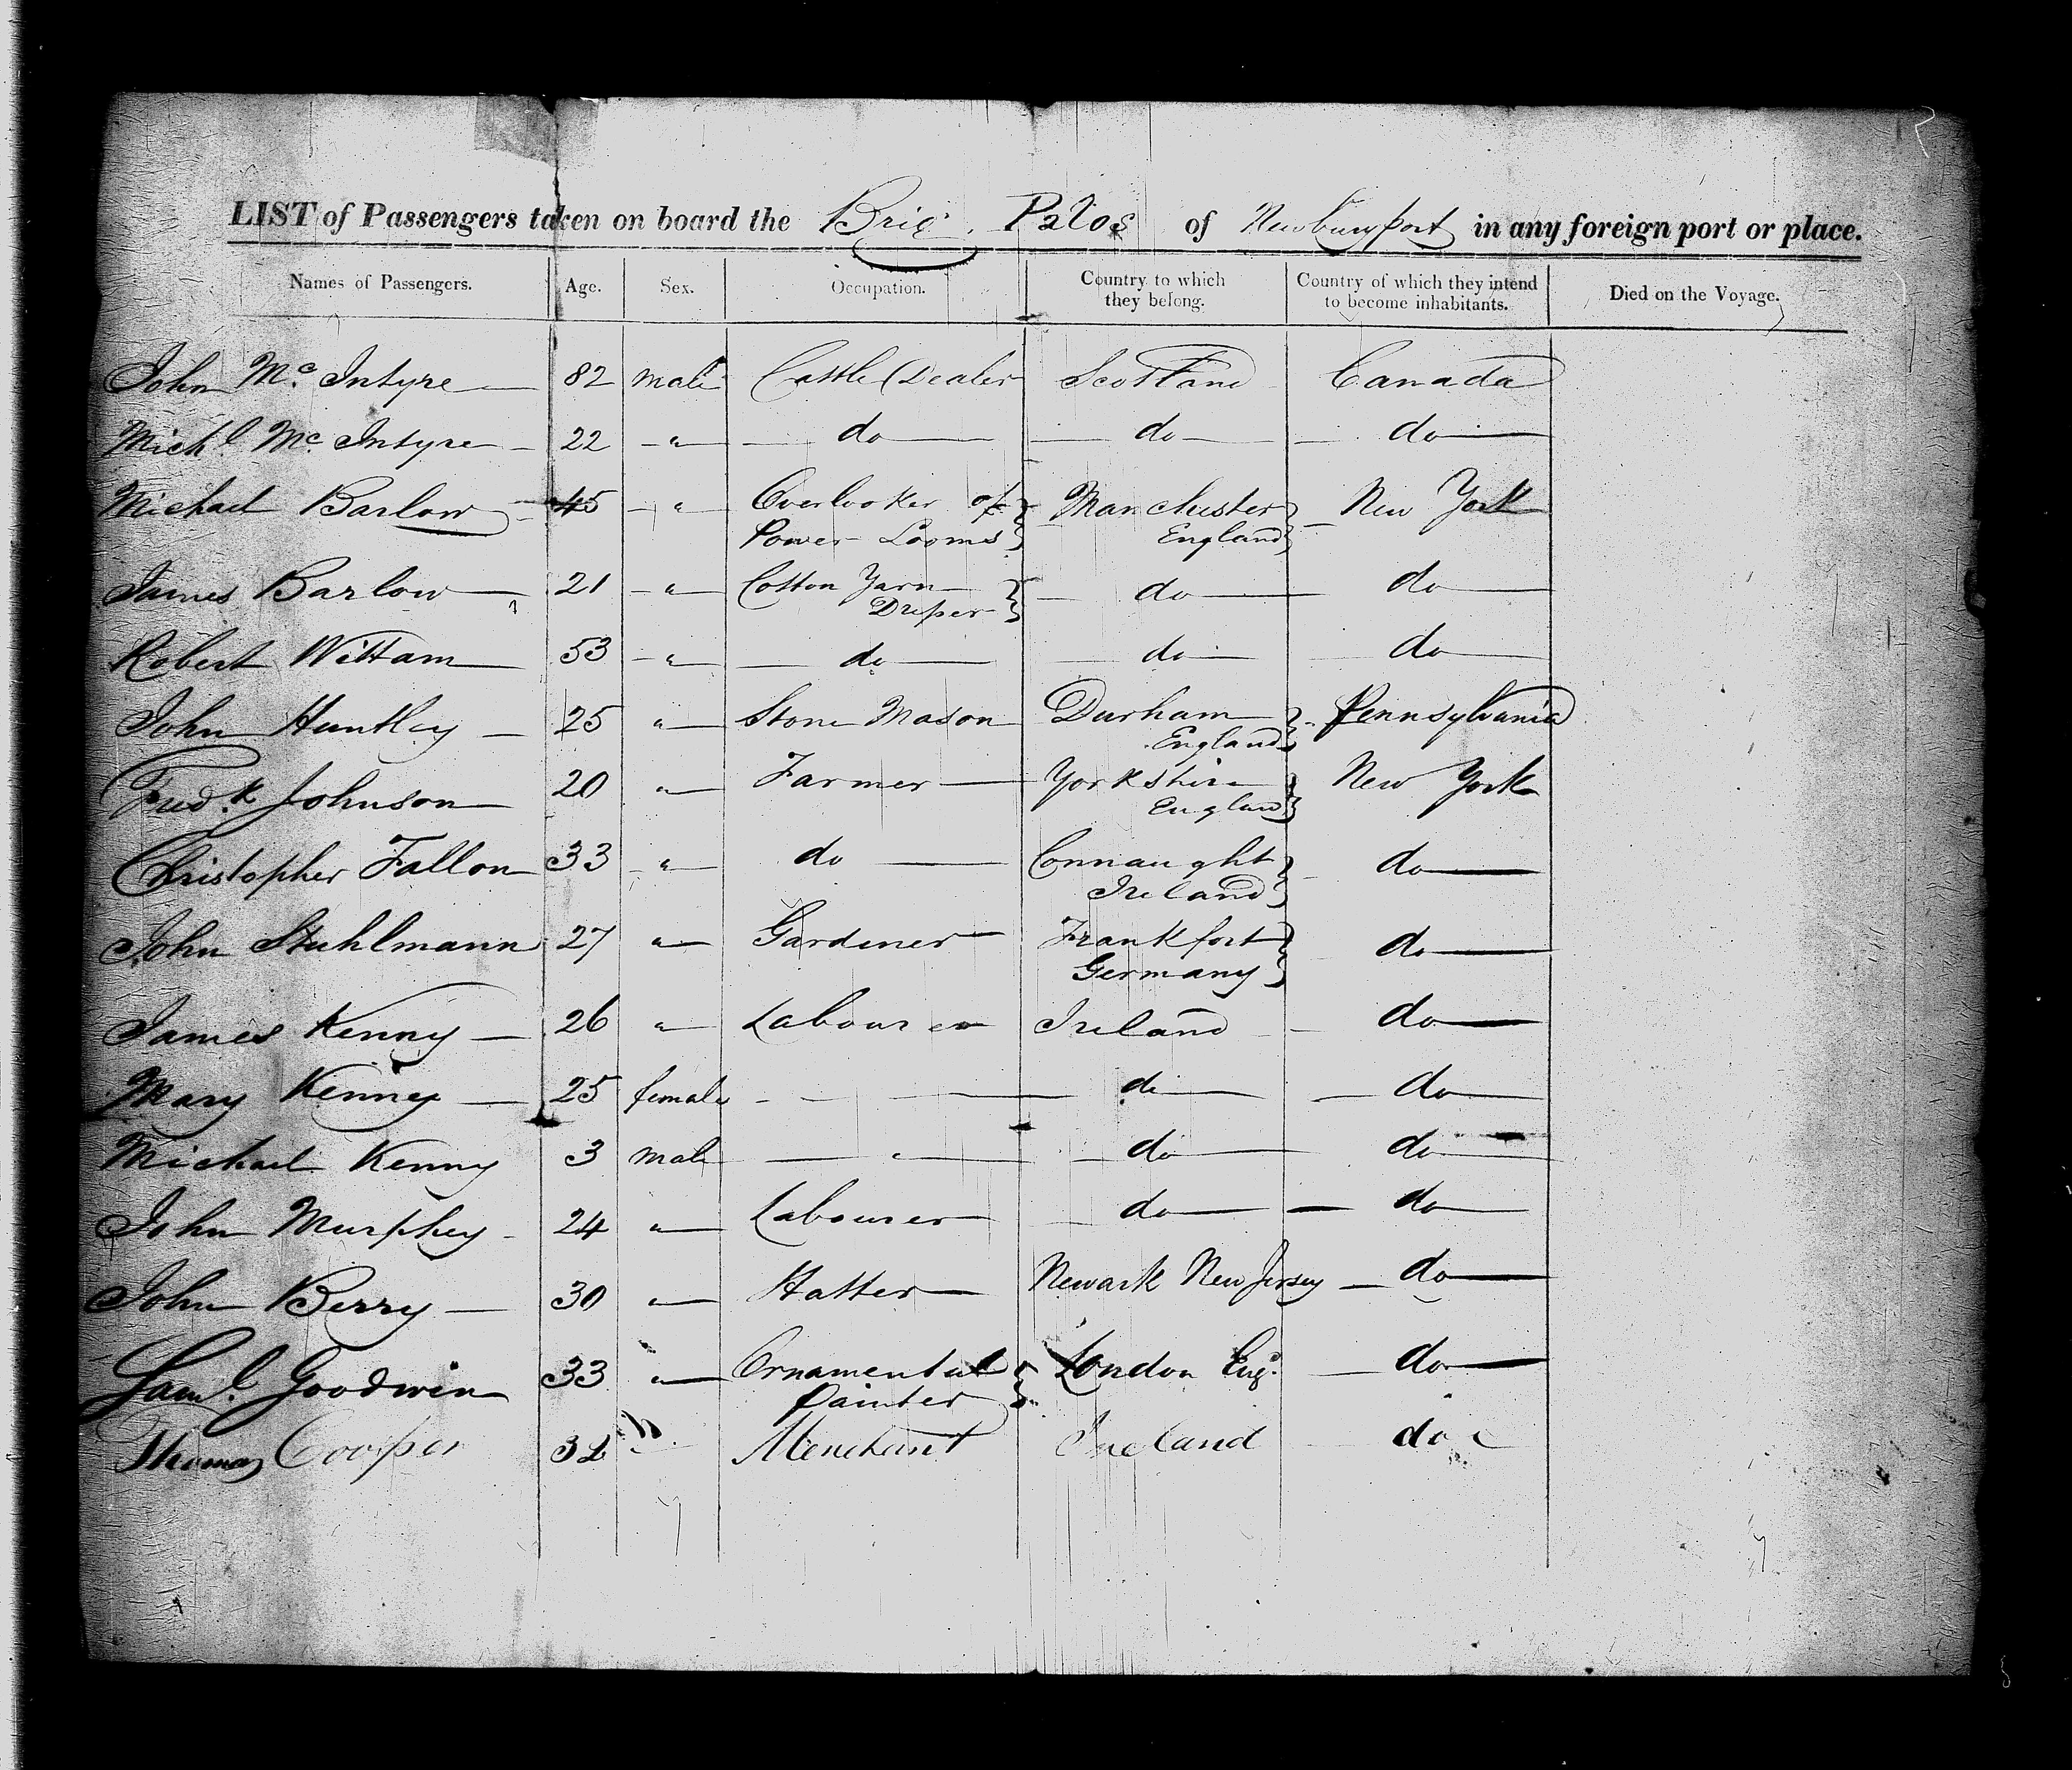 LIST of Passengers taken on board the Brig Palos of Newburyport in any foreign port or place.
Names of Passengers. Age. Sex. Occupation. Country to which they belong. Country of which they intend to become inhabitants. Died on the Voyage.
John Mc. Intyre 82 male Cattle Dealer Scotland Canada
Michl. Mc. Intyre 22 " do do do
Michael Barlow 45 " Overlooker of Manchester New York
Power Looms England
James Barlow 21 " Cotton Yarn do do
Draper
Robert Wittam 53 " do do do
John Huntley 25 " Stone Mason Durham Pennsylvania
England
Fredk. Johnson 20 " Farmer Yorkshire New York
England
Christopher Fallon 33 " do Connaught do
Ireland
John Stuhlmann 27 " Gardener Frankfort do
Germany
James Kenny 26 " Labourer Ireland do
Mary Kenney 25 female do do
Michael Kenny 3 male " do do
John Murphey 24 " Labourer do do
John Berry 30 " Hatter Newark New Jersey do
Saml. Goodwin 33 " Ornamental London Eng. do
Painter
Thomas Cooper 32 " Merchant Ireland do